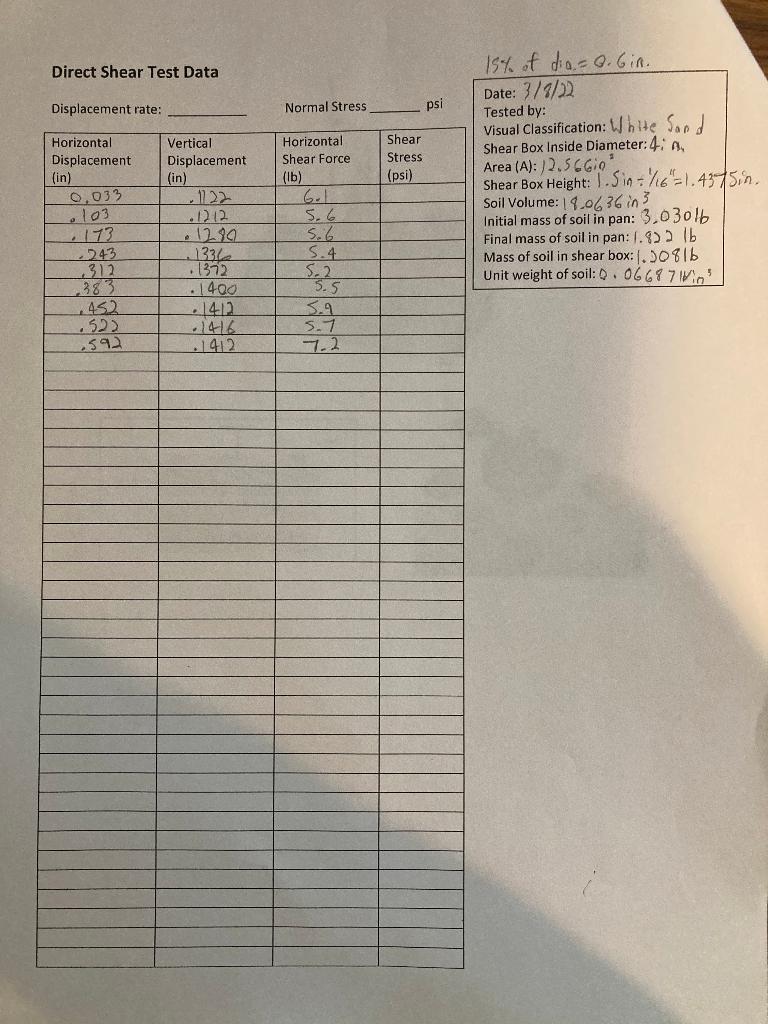 15% of dia. = 0.6in.
Direct Shear Test Data
Displacement rate: ________ Normal Stress ______ psi
Date: 3/8/22
Tested by:
Visual Classification: White Sand
Shear Box Inside Diameter: 4in.
Area (A): 12.566in²
Shear Box Height: 1.5in - 1/16" = 1.4375in.
Soil Volume: 18.0636in³
Initial mass of soil in pan: 3.030lb
Final mass of soil in pan: 1.822 lb
Mass of soil in shear box: 1.208lb
Unit weight of soil: 0.06687lb/in³
Horizontal Displacement (in) Vertical Displacement (in) Horizontal Shear Force (lb) Shear Stress (psi)
0.033 .1122 6.1
.103 .1212 5.6
.173 .1280 5.6
.243 .1336 5.4
.312 .1372 5.2
.383 .1400 5.5
.452 .1412 5.9
.522 .1416 5.7
.592 .1412 7.2